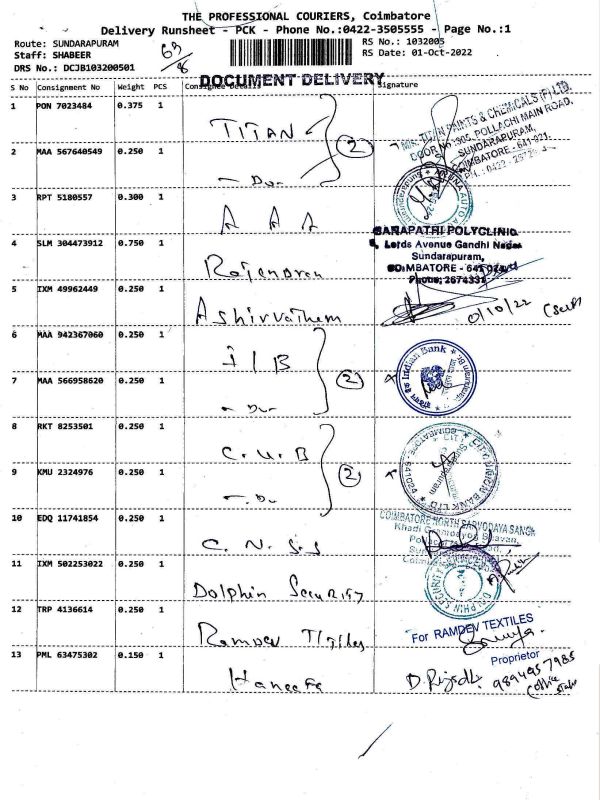 THE PROFESSIONAL COURIERS, Coimbatore
Delivery Runsheet - PCK - Phone No.:0422-3505555 - Page No.:1
Route: SUNDARAPURAM
RS No.: 1032005
Staff: SHABEER
RS Date: 01-Oct-2022
DRS No.: DCJB103200501
DOCUMENT DELIVERY
S No Consignment No Weight PCS Consignee Details Signature
1 PON 7023484 0.375 1 TITAN
2 MAA 567640549 0.250 1 - Do -
2
3 RPT 5180557 0.300 1 A A A
4 SLM 304473912 0.750 1 Rajendran
GANAPATHI POLYCLINIC
Lords Avenue Gandhi Nagar
Sundarapuram,
COIMBATORE - 641 024
Phone: 2674331
5 IXM 49962449 0.250 1 Ashirvatham
6 MAA 942367060 0.250 1 I I B
7 MAA 566958620 0.250 1 - Do -
2
Indian Bank
8 RKT 8253501 0.250 1 C. U. B
9 KMU 2324976 0.250 1 - Do
2
CITY UNION BANK LTD
10 EDQ 11741854 0.250 1 C. N. S. S
COIMBATORE NORTH SARVODAYA SANGH
11 IXM 502253022 0.250 1 Dolphin Security
DOLPHIN SECURITY
12 TRP 4136614 0.250 1 Ramdev
For RAMDEV TEXTILES
Proprietor
13 PML 63475302 0.150 1 Haneefa
9894957985